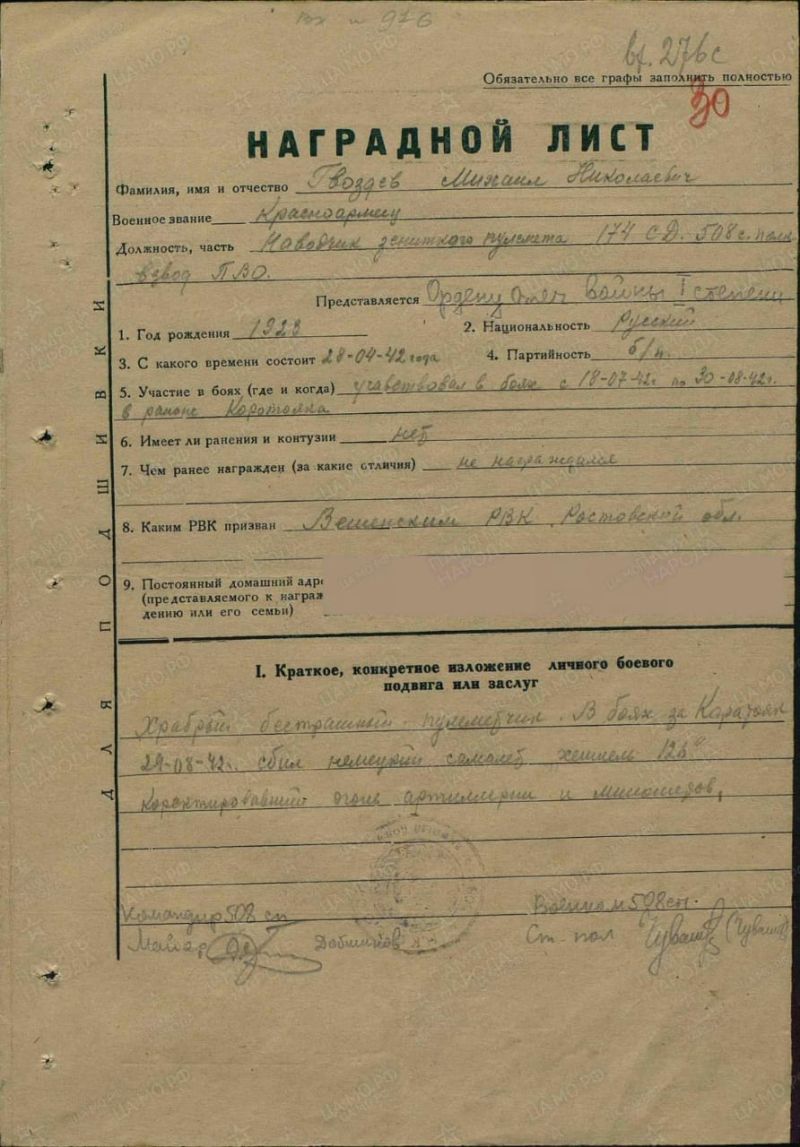 вх. 276с
Обязательно все графы заполнить полностью
30
НАГРАДНОЙ ЛИСТ
Фамилия, имя и отчество Гвоздев Михаил Николаевич
Военное звание Красноармеец
Должность, часть Наводчик зенитного пулемета 174 СД. 508 с. полк
взвод ПВО.
Представляется Ордену Отеч войны I степени
1. Год рождения 1923 2. Национальность Русский
3. С какого времени состоит 28-04-42 года 4. Партийность б/п.
5. Участие в боях (где и когда) учавствовал в боях с 18-07-42г. по 30-08-42г.
в районе Коротояка
6. Имеет ли ранения и контузии нет
7. Чем ранее награжден (за какие отличия) не награждался
8. Каким РВК призван Вешенским РВК Ростовской обл.
9. Постоянный домашний адре
(представляемого к награж
дению или его семьи)
I. Краткое, конкретное изложение личного боевого
подвига или заслуг
Храбрый бестрашный пулеметчик. В боях за Каратояк
29-08-42г. сбил немецкий самолет хеншель 126"
коректировавший огонь артиллерии и минометов,
Командир 508 сп Военком 508 сп.
Майор Ст. пол
ДЛЯ ПОДШИВКИ